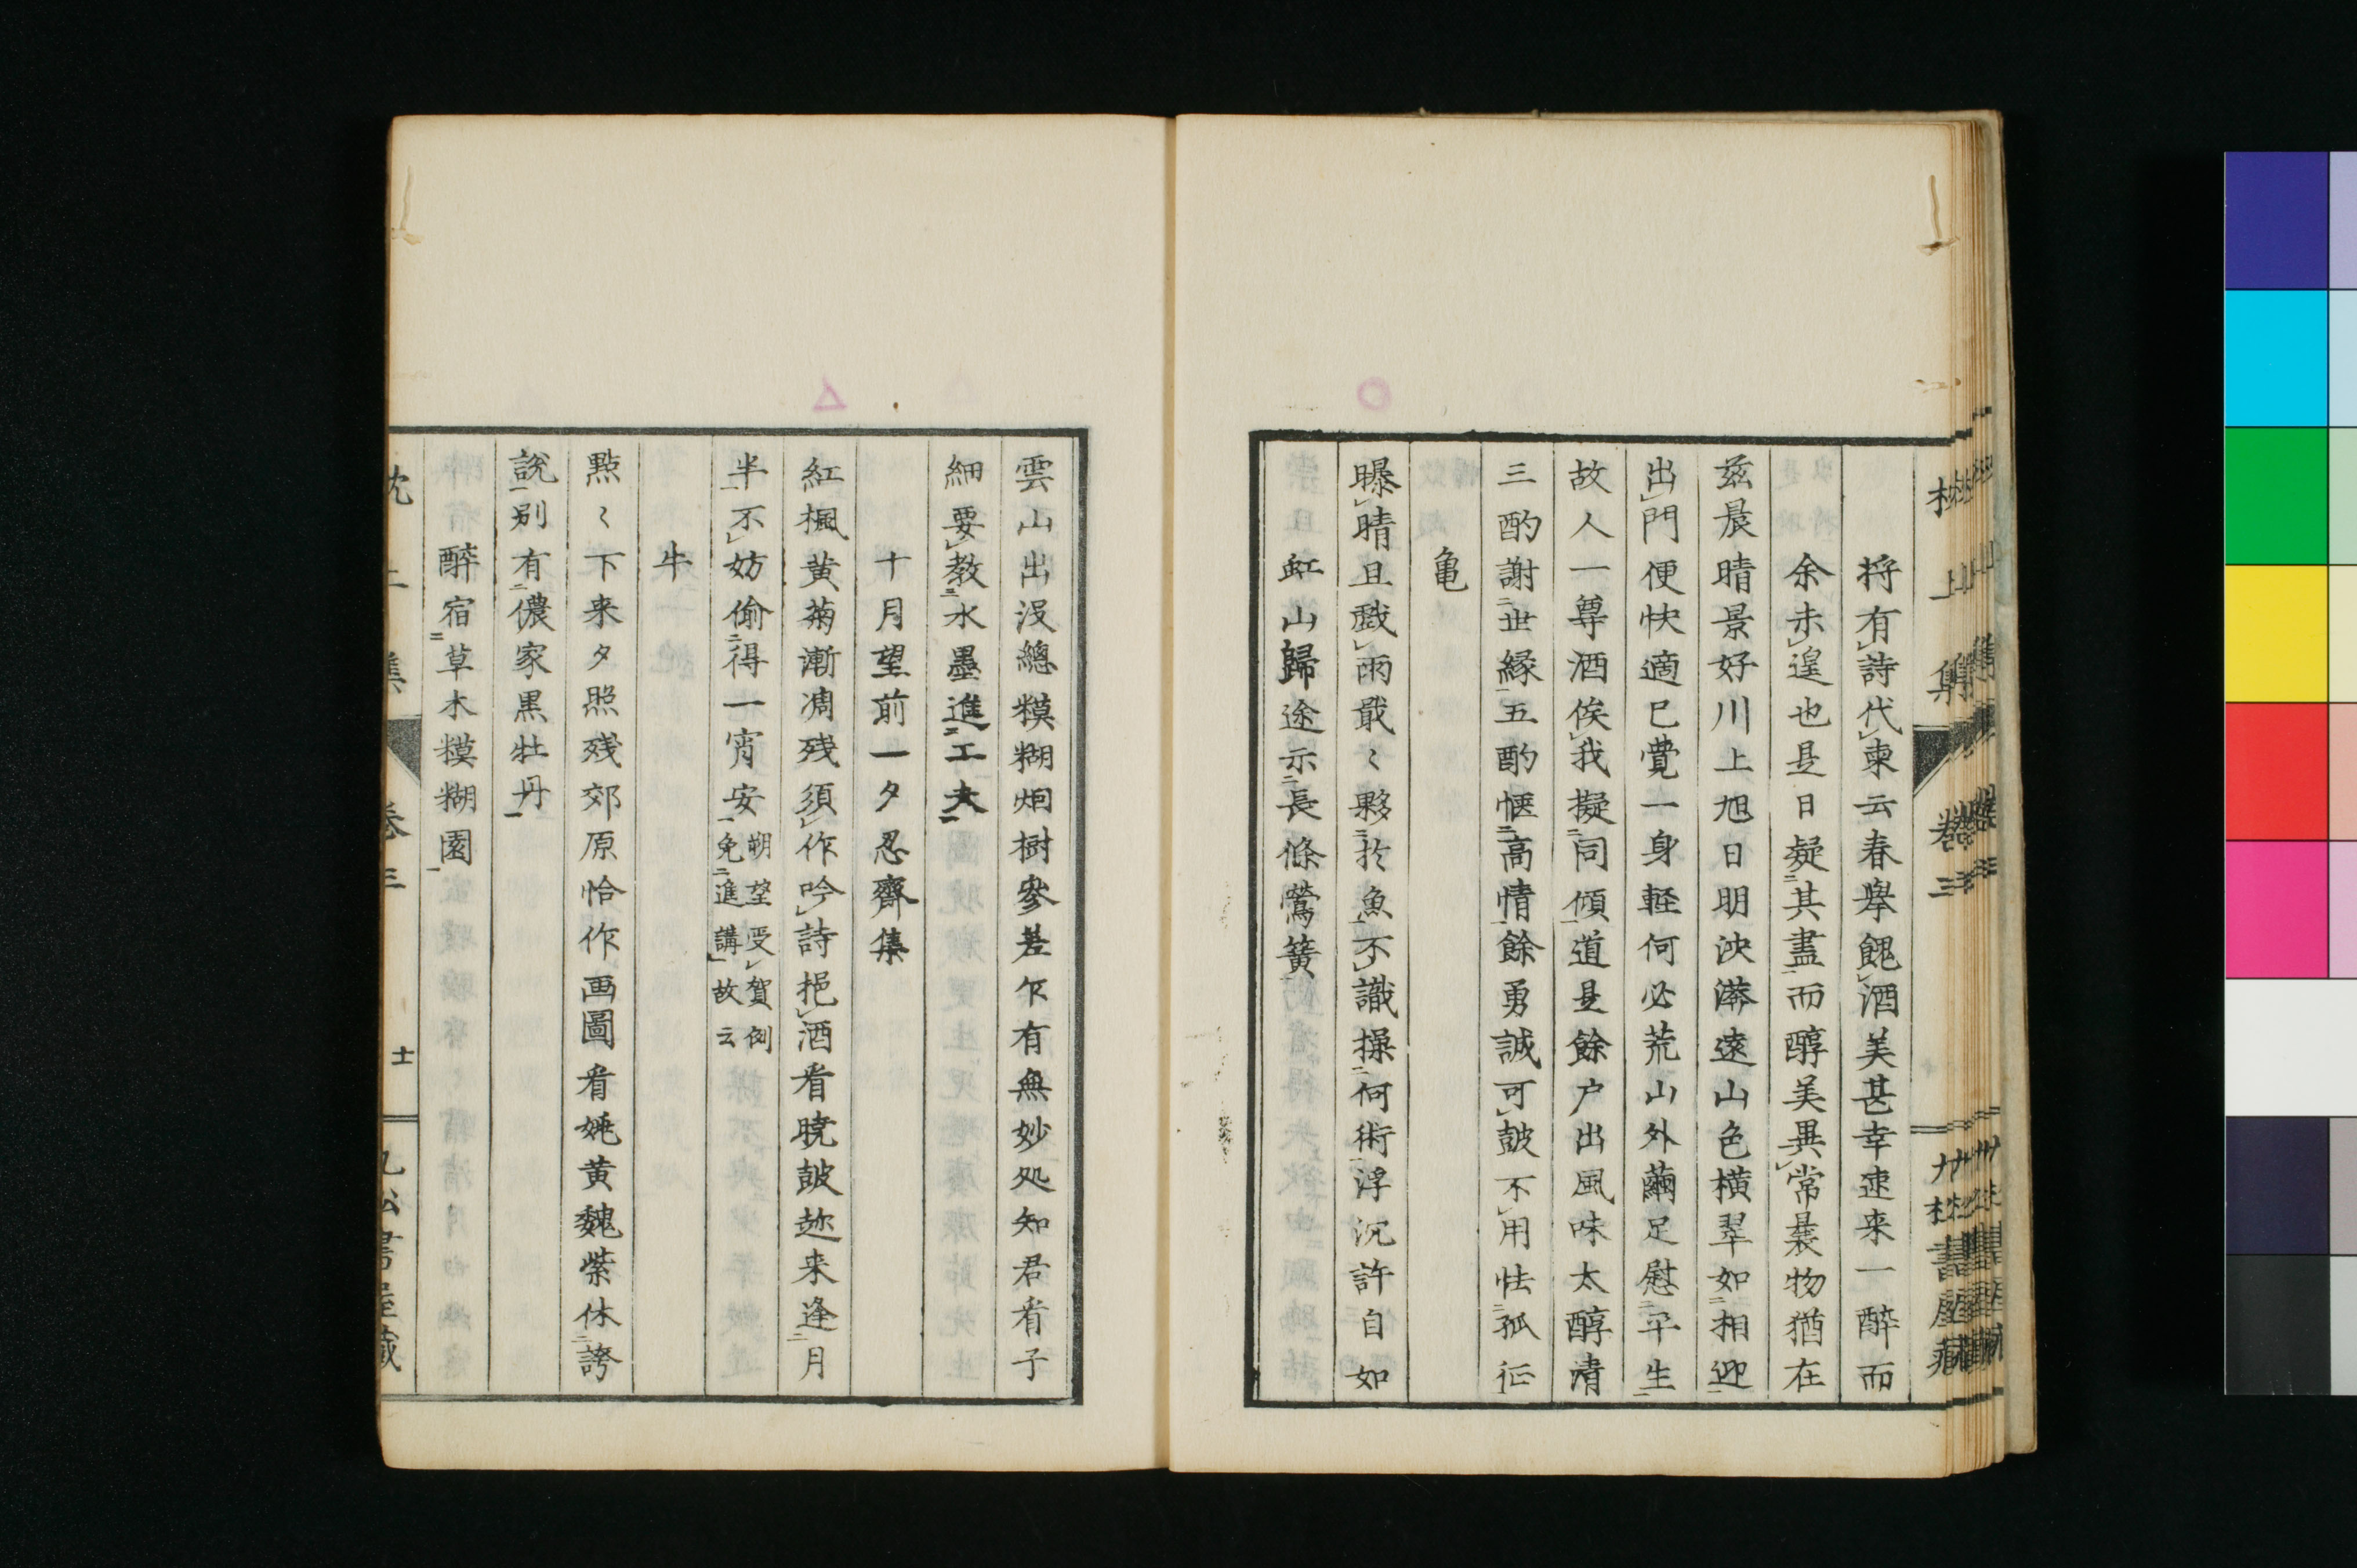 将有詩代柬云春擧餽酒美甚幸速来一醉而
余未遑也是日凝其盡而醇美異常曩物猶在
茲晨晴景好川上旭日明泱漭遠山色橫翠如相迎
出門便快適已覺一身軽何必荒山外繭足慰平生
故人一尊酒俟我擬同傾道是餘戸出風味太醇清
三酌謝世縁五酌愜高情餘勇誠可鼓不用怯孤征
亀
曝晴且戯雨戢〻夥於魚不識操何術浮沉許自如
虹山歸途示長條鶯簧
雲山出没總糢糊烟樹參差乍有無妙処知君看子
細要教水墨進工夫
十月望前一夕忍齋集
紅楓黄菊漸凋残須作吟詩挹酒看暁鼓趂来逢月
半不妨偷得一宵安朔望受賀例
免進講故云
牛
點〻下来夕照残郊原恰作画圖看姚黄魏紫休誇
說別有儂家黒牡丹
醉宿草木糢糊園
集
巻三
十一
書屋藏